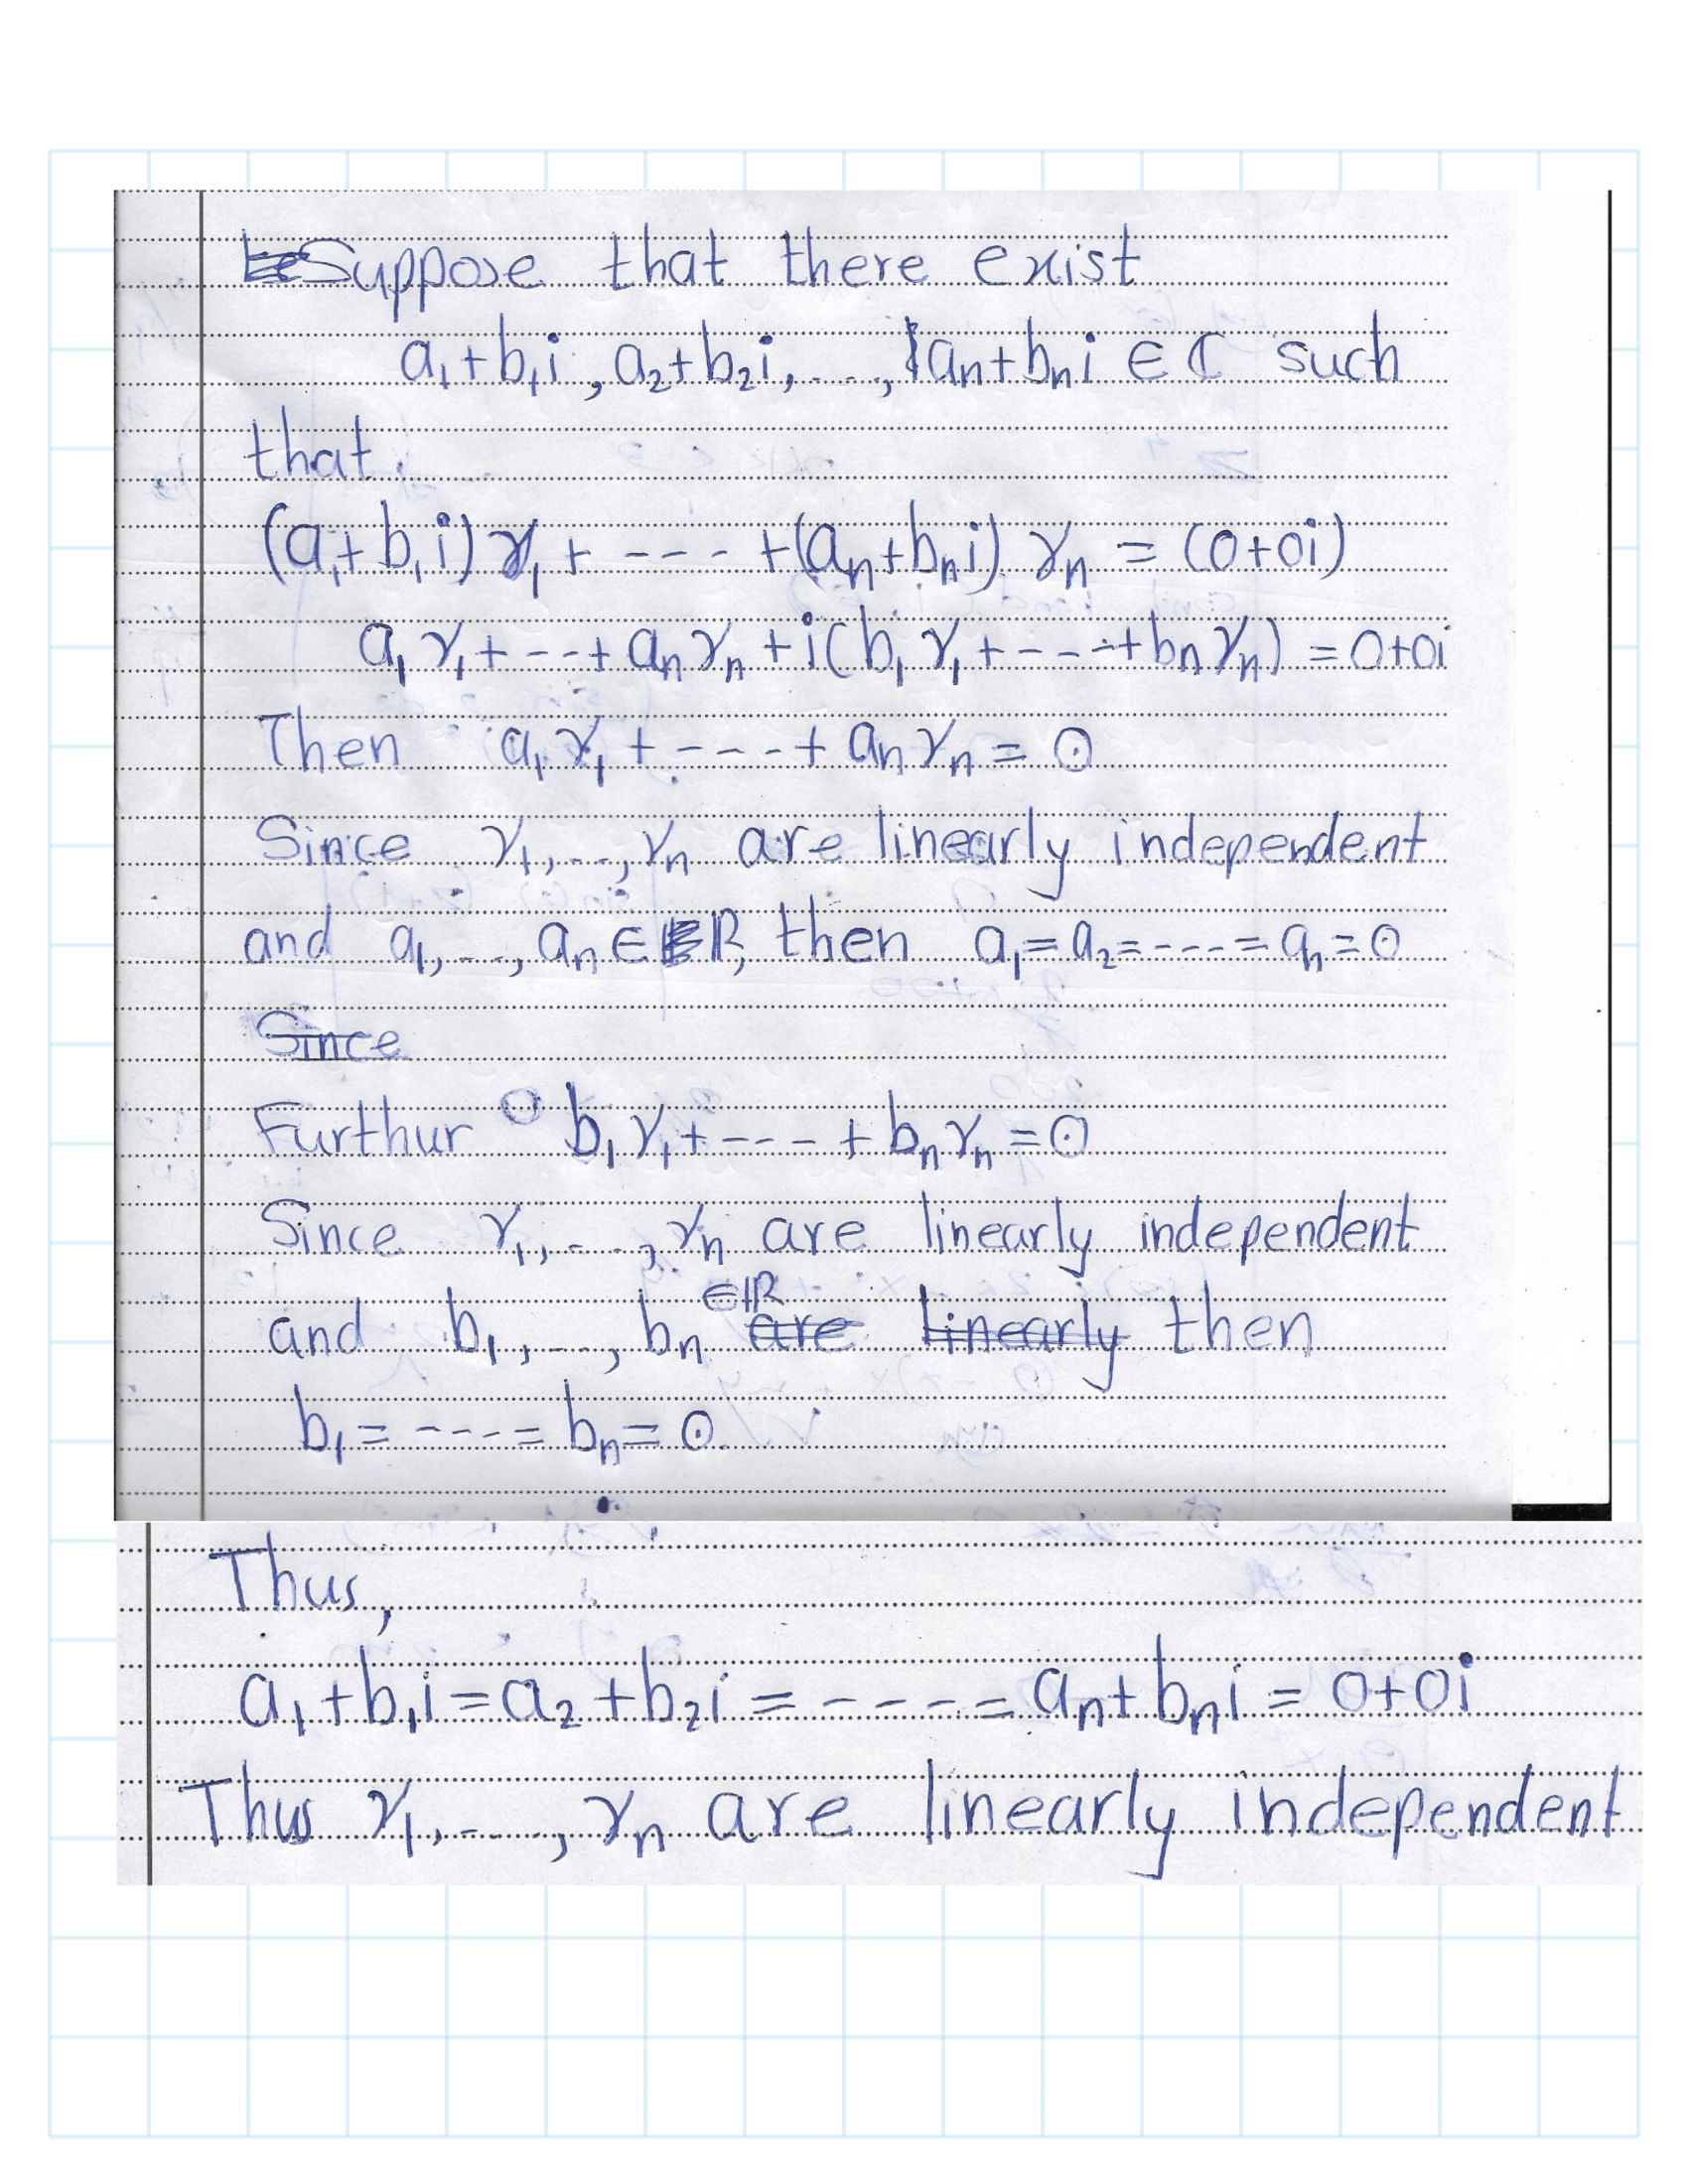 Suppose that there exist
a₁+b₁i, a₂+b₂i, ..., an+bni ∈ ℂ such
that
(a₁+b₁i)γ₁ + ---- +(an+bni) γn = (0+0i)
a₁γ₁+---+anγn+i(b₁γ₁+----+bnγn) = 0+0i
Then a₁γ₁+----+anγn = 0
Since γ₁,...,γn are linearly independent
and a₁,...,an ∈ ℝ, then a₁=a₂=----=an=0
Since
Furthur b₁γ₁+----+bnγn=0
Since γ₁,...,γn are linearly independent
and b₁,...,bn ∈ℝ are linearly then
b₁=----=bn=0
Thus,
a₁+b₁i=a₂+b₂i=----=an+bni=0+0i
Thus γ₁,....,γn are linearly independent